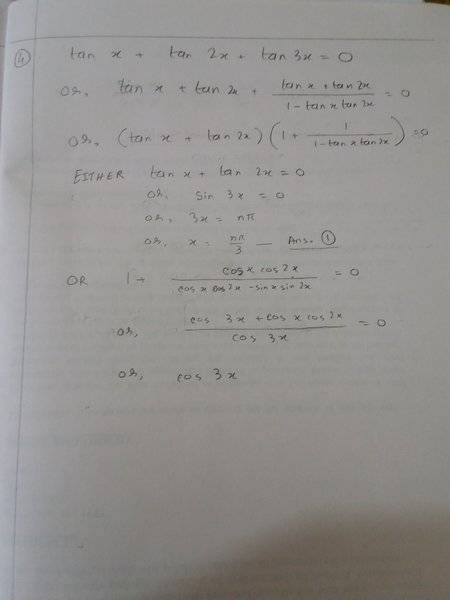 ④ tan x + tan 2x + tan 3x = 0
or, tan x + tan 2x + (tan x + tan 2x)/(1 - tan x tan 2x) = 0
or, (tan x + tan 2x) (1 + 1/(1 - tan x tan 2x)) = 0
EITHER tan x + tan 2x = 0
or, sin 3x = 0
or, 3x = nπ
or, x = nπ/3 — Ans. ①
OR 1 + (cos x cos 2x)/(cos x cos 2x - sin x sin 2x) = 0
or, (cos 3x + cos x cos 2x)/(cos 3x) = 0
or, cos 3x